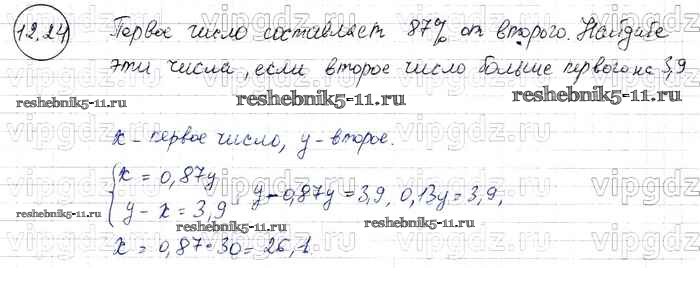 12.24 Первое число составляет 87% от второго. Найдите
эти числа, если второе число больше первого на 3,9
reshebnik5-11.ru reshebnik5-11.ru
vipgdz.ru vipgdz.ru
x - первое число, y - второе.
{ x = 0,87y
y - x = 3,9 y - 0,87y = 3,9, 0,13y = 3,9,
reshebnik5-11.ru reshebnik5-11.ru
x = 0,87·30 = 26,1.
vipgdz.ru vipgdz.ru